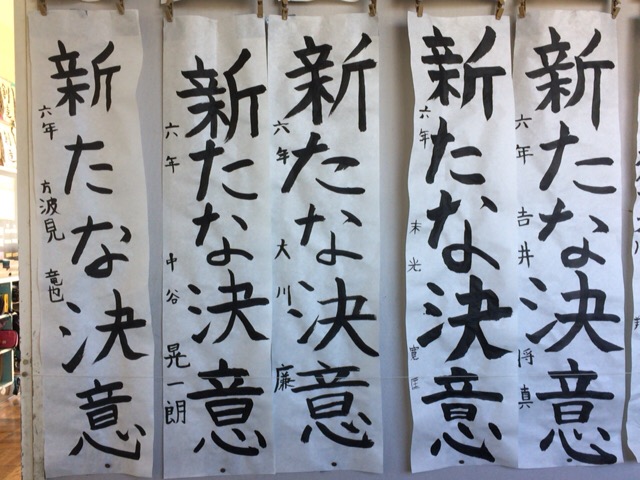 新たな決意
六年 吉井 将真
新たな決意
六年 末光 寛
新たな決意
六年 大川 廉
新たな決意
六年 中谷 晃一朗
新たな決意
六年 方波見 竜也